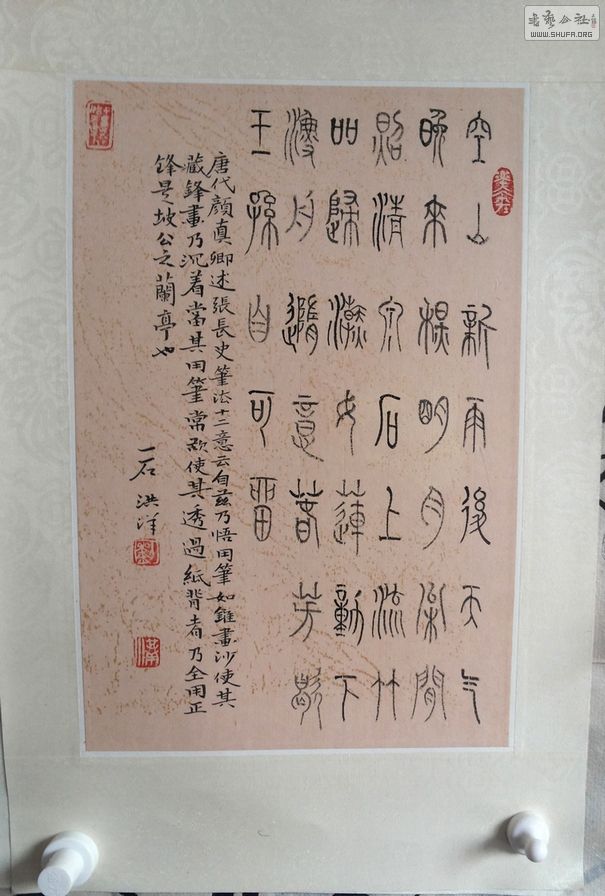 書藝公社
WWW.SHUFA.ORG
空山新雨後天气
晚来秋明月松間
照清泉石上流竹
吅歸澣女蓮動下
漁舟隨意春芳歇
王孫自可畱
唐代顏真卿述張長史筆法十二意云自茲乃悟用筆如錐畫沙使其
藏鋒畫乃沉着當其用筆常欲使其透過紙背者乃全用正
鋒是坡公之蘭亭也
一石 洪洋